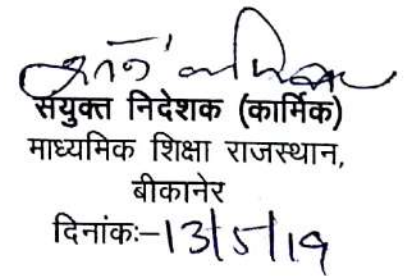 संयुक्त निदेशक (कार्मिक)
माध्यमिक शिक्षा राजस्थान,
बीकानेर
दिनांकः–13/5/19